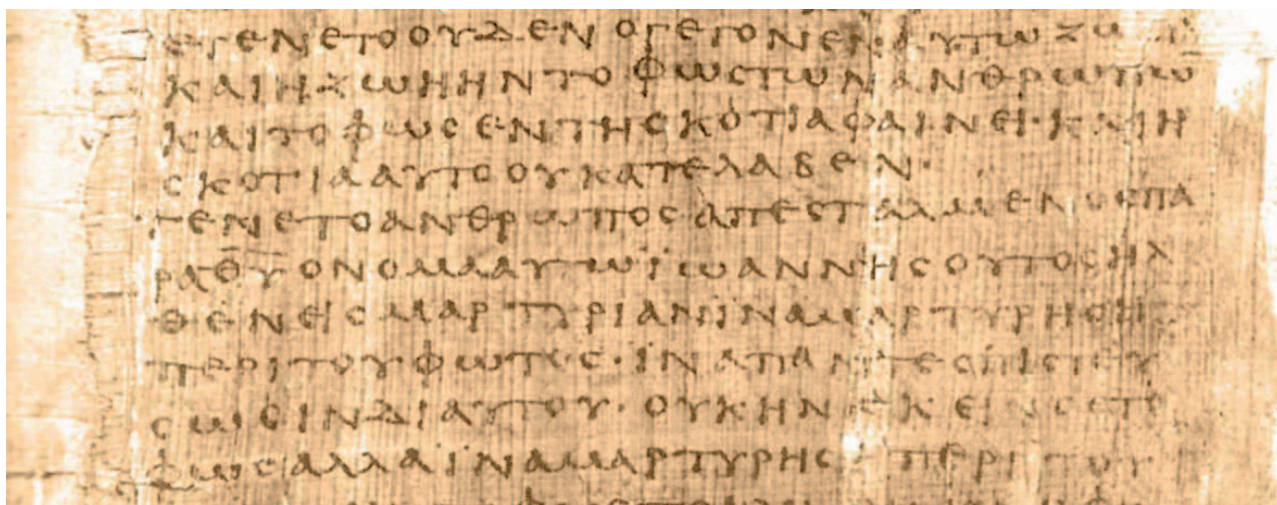 ΕΓΕΝΕΤΟΟΥΔΕΝΟΓΕΓΟΝΕΝΑΥΤΩΖΩ
ΚΑΙΗΖΩΗΗΝΤΟΦΩΣΤΩΝΑΝΘΡΩΠΩ
ΚΑΙΤΟΦΩΣΕΝΤΗΣΚΟΤΙΑΦΑΙΝΕΙ·ΚΑΙΗ
ΣΚΟΤΙΑΑΥΤΟΟΥΚΑΤΕΛΑΒΕΝ·
ΓΕΝΕΤΟΑΝΘΡΩΠΟΣΑΠΕΣΤΑΛΜΕΝΟΣΠΑ
ΡΑΘ̅Υ̅ΟΝΟΜΑΑΥΤΩΪΩΑΝΝΗΣΟΥΤΟΣΗΛ
ΘΕΝΕΙΣΜΑΡΤΥΡΙΑΝΪΝΑΜΑΡΤΥΡΗΣΗ
ΠΕΡΙΤΟΥΦΩΤΟΣ·ΪΝΑΠΑΝΤΕΣΠΙΣΤΕΥ
ΣΩΣΙΝΔΙΑΥΤΟΥ·ΟΥΚΗΝΕΚΕΙΝΟΣΤΟ
ΦΩΣΑΛΛΑΪΝΑΜΑΡΤΥΡΗΣΗΠΕΡΙΤΟΥ